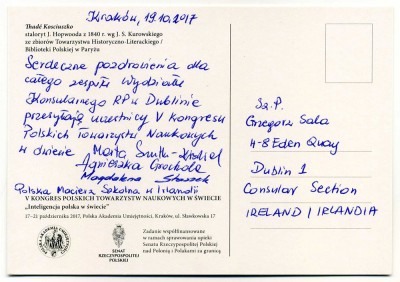 Kraków, 19.10.2017
Thadé Kosciuszko
staloryt J. Hopwooda z 1840 r. wg J. S. Kurowskiego
ze zbiorów Towarzystwa Historyczno-Literackiego /
Biblioteki Polskiej w Paryżu
Serdeczne pozdrowienia dla
całego zespołu Wydziału
Konsularnego RP w Dublinie
przesyłają uczestnicy V Kongresu
Polskich Towarzystw Naukowych
w świecie Marta
Agnieszka Grochola
Magdalena
Polska Macierz Szkolna w Irlandii
V KONGRES POLSKICH TOWARZYSTW NAUKOWYCH W ŚWIECIE
„Inteligencja polska w świecie"
17–22 października 2017, Polska Akademia Umiejętności, Kraków, ul. Sławkowska 17
SENAT
RZECZYPOSPOLITEJ
POLSKIEJ
Zadanie współfinansowane
w ramach sprawowania opieki
Senatu Rzeczypospolitej Polskiej
nad Polonią i Polakami za granicą
Sz. P.
Grzegorz Sala
4-8 Eden Quay
Dublin 1
Consular Section
IRELAND / IRLANDIA